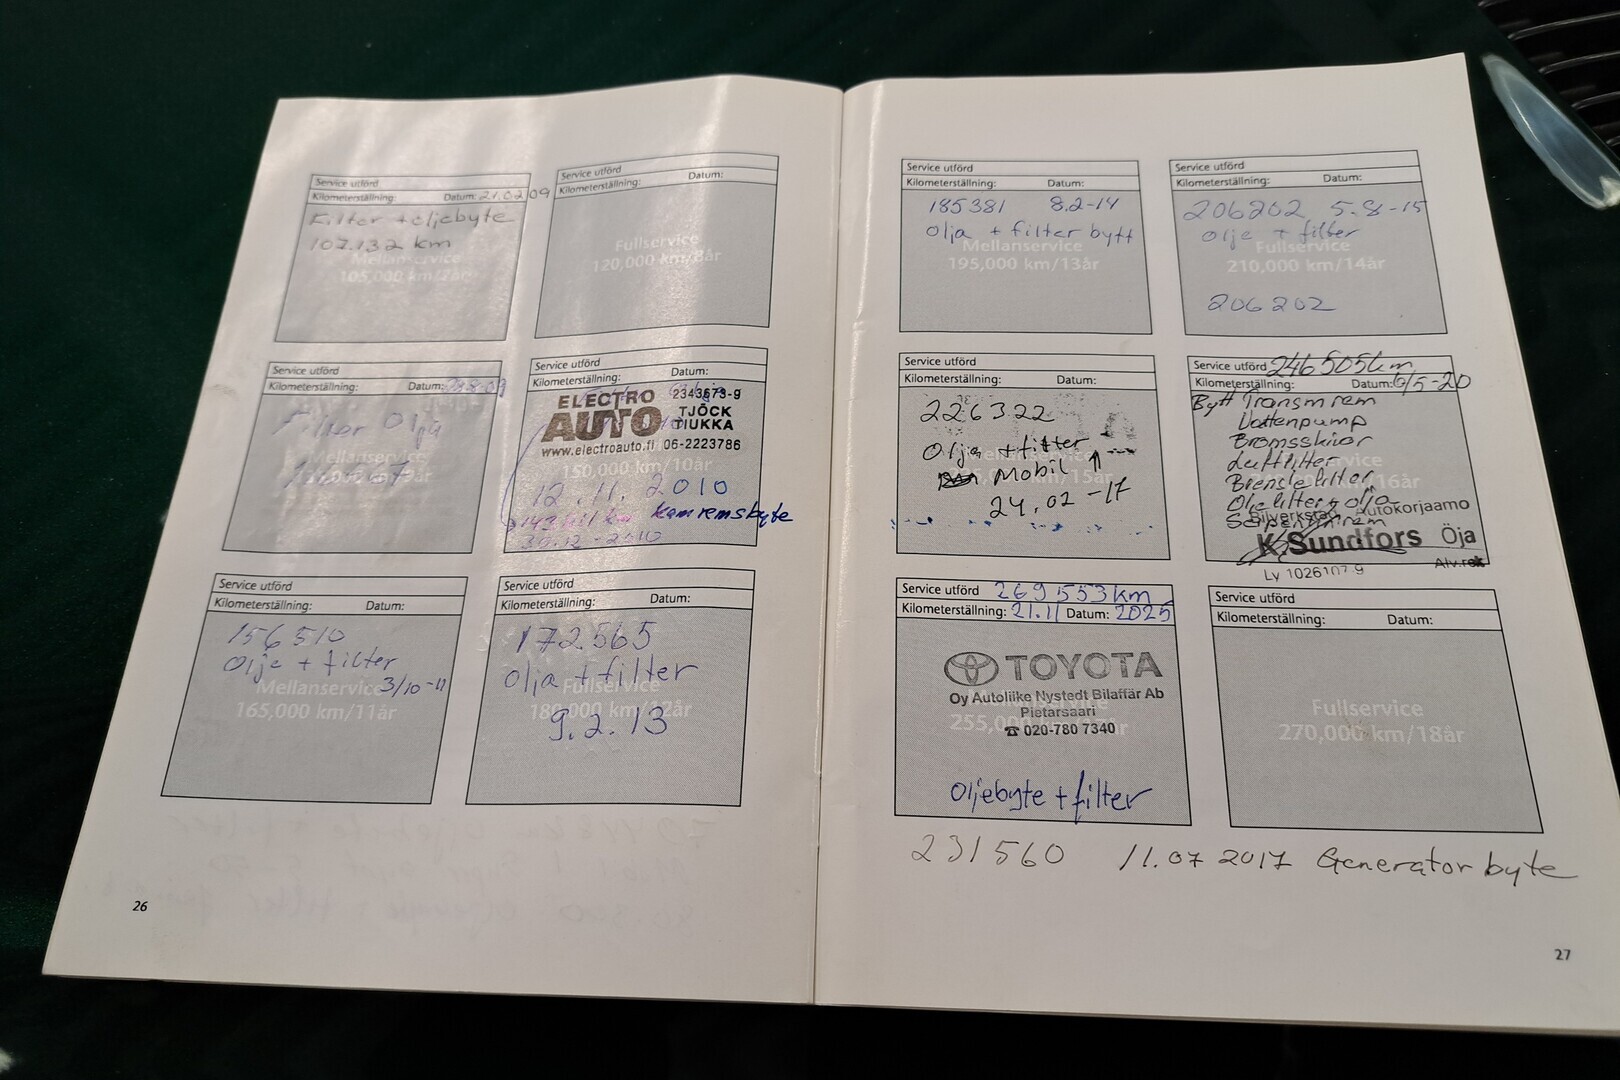 Service utförd
Kilometerställning: Datum: 21.02 09
Filter + oljebyte
107.132 km
Mellanservice
105,000 km/7år
Service utförd
Kilometerställning: Datum:
Fullservice
120,000 km/8år
Service utförd
Kilometerställning: Datum:
Filter Olja
Mellanservice
Service utförd
Kilometerställning: Datum:
ELECTRO 2343673-9
AUTO TJÖCK
TIUKKA
www.electroauto.fi 06-2223786
150,000 km/10år
12.11.2010
kamremsbyte
30.12-2010
Service utförd
Kilometerställning: Datum:
156510
Olje + filter
Mellanservice 3/10-11
165,000 km/11år
Service utförd
Kilometerställning: Datum:
172.565
Olja + filter
Fullservice
180,000 km/12år
9.2.13
26
Service utförd
Kilometerställning: Datum:
185381 8.2-14
Olja + filter bytt
Mellanservice
195,000 km/13år
Service utförd
Kilometerställning: Datum:
206202 5.8-15
Olje + filter
Fullservice
210,000 km/14år
206202
Service utförd
Kilometerställning: Datum:
226322
Olja + filter
Mobil 1
24.02-17
Service utförd 246505km
Kilometerställning: Datum: 6/5-20
Bytt Transm rem
Vattenpump
Bromsskivor
Luftfilter
Bränslefilter
Oljefilter + olja
Bilverkstad Autokorjaamo
K.Sundfors Öja
Ly 1026107-9
Service utförd 269 553km
Kilometerställning: 21.11 Datum: 2025
TOYOTA
Oy Autoliike Nystedt Bilaffär Ab
Pietarsaari
☎ 020-780 7340
Oljebyte + filter
Service utförd
Kilometerställning: Datum:
Fullservice
270,000 km/18år
231560 11.07 2017 Generator byte
27